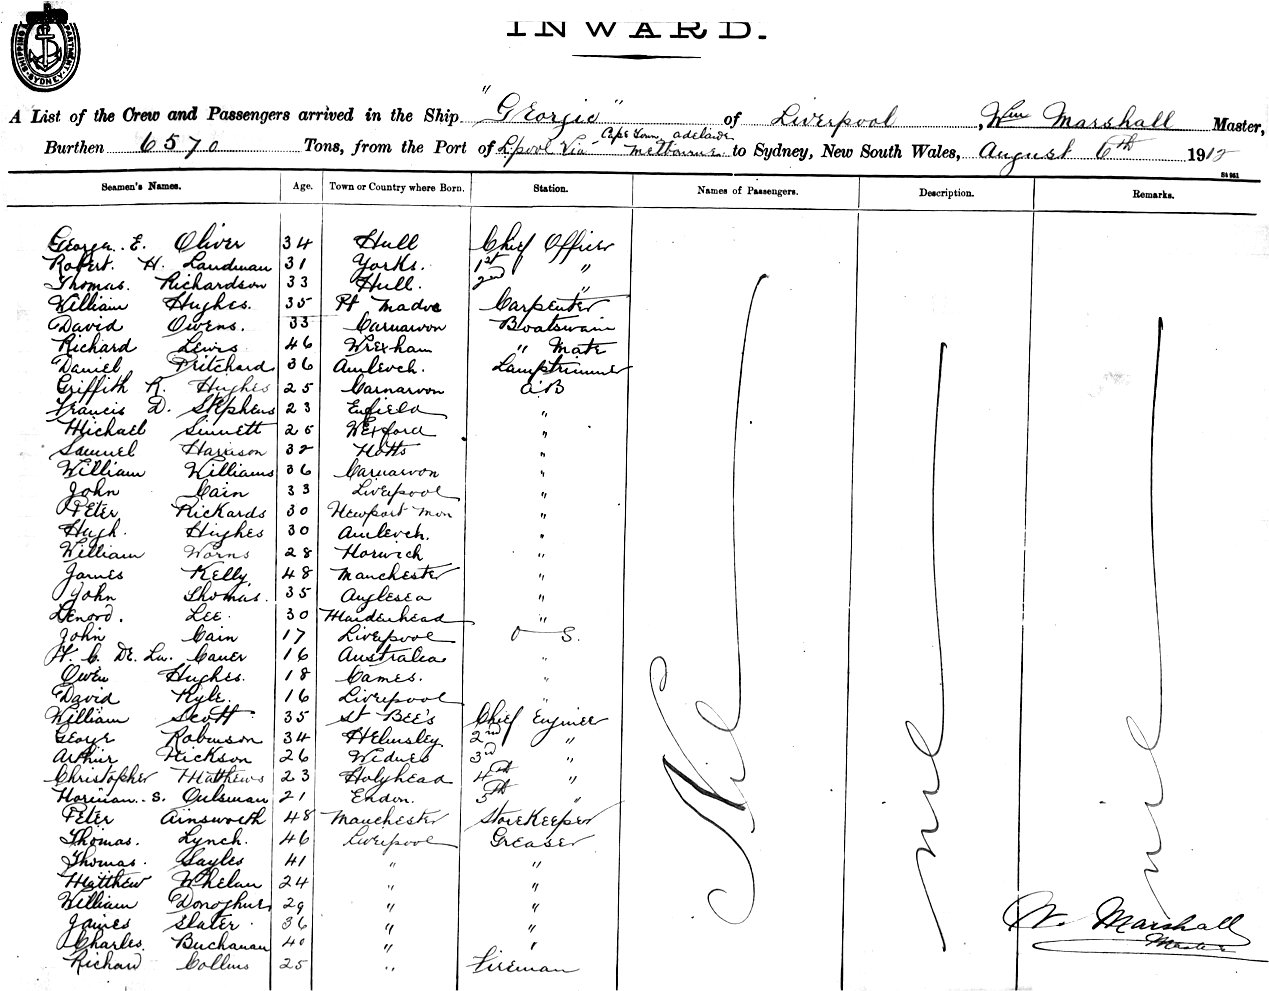 SHIPPING DEPARTMENT. SYDNEY
INWARD.
A List of the Crew and Passengers arrived in the Ship "Georgic" of Liverpool, Wm Marshall Master,
Burthen 6570 Tons, from the Port of L'pool Via Cape Town, Adelaide Melbourne to Sydney, New South Wales, August 6th 1912
Seamen's Names. Age. Town or Country where Born. Station. Names of Passengers. Description. Remarks.
George E. Oliver 34 Hull Chief Officer
Robert. H. Landman 31 Yorks. 1st "
Thomas. Richardson 33 Hull. 2nd "
William Hughes. 35 Pt Madoc Carpenter
David Owens. 33 Carnarvon Boatswain
Richard Lewis 46 Wrexham " Mate
Daniel Pritchard 36 Amlwch. Lamptrimmer
Griffith R. Hughes 25 Carnarvon A.B
Francis D. Stephens 23 Enfield "
Michael Sinnett 25 Wexford "
Samuel Harrison 32 Notts "
William Williams 36 Carnarvon "
John Cain 33 Liverpool "
Peter Rickards 30 Newport Mon "
Hugh. Hughes 30 Amlwch. "
William Worns 28 Horwich "
James Kelly 48 Manchester "
John Thomas. 35 Anglesea "
Lenord. Lee. 30 Maidenhead "
John Cain 17 Liverpool O S.
De Cauer 16 Australia "
Owen Hughes. 18 Cames. "
David Kyle. 16 Liverpool "
William Scott 35 St Bee's Chief Engineer
George Robinson 34 Helmsley 2nd "
Arthur Hickson 26 Widnes 3rd "
Christopher Matthews 23 Holyhead 4th "
Norman. S. Oulsman 21 Endon. 5th "
Peter Ainsworth 48 Manchester Storekeeper
Thomas. Lynch. 46 Liverpool Greaser
Thomas. Sayles 41 " "
Matthew Whelan 24 " "
William Donoghue 29 " "
James Slater 36 " "
Charles. Buchanan 40 " "
Richard Collins 25 " Fireman
Nil
nil
nil
W. Marshall
Master